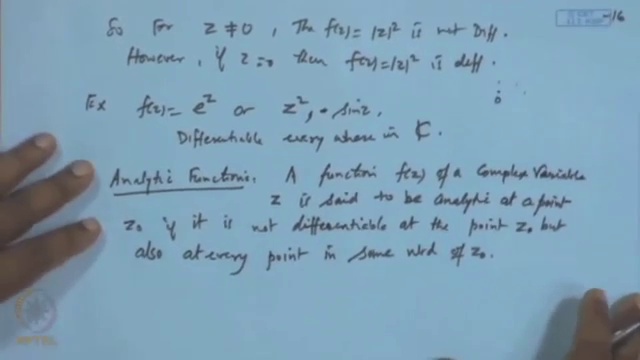 So For z ≠ 0, The f(z) = |z|² is not Diff.
However, if z = 0 then f(z) = |z|² is diff.
Ex f(z) = e^z or z², sin z,
Differentiable every where in ₵.
Analytic Functions: A function f(z) of a Complex Variable
z is said to be analytic at a point
z₀ if it is not differentiable at the point z₀ but
also at every point in some nbd of z₀.
NPTEL